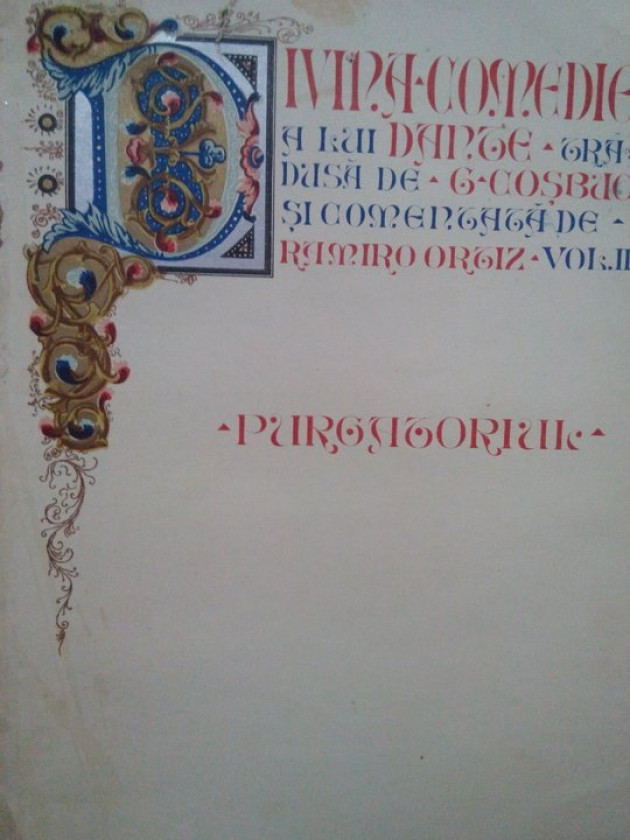 DIVINA·COMEDIE
A LUI DANTE · TRĂ
DUSĂ DE · G·COȘBUC
ȘI COMENTATĂ DE ·
RAMIRO ORTIZ · VOL. II
·PURGATORIUL·